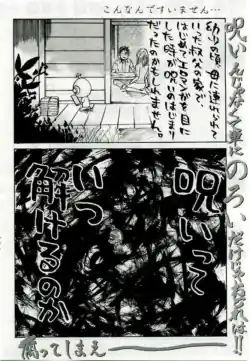 こんなんですいません…
幼少の頃、母に連れられて
いった叔父の家で
はじめてエロマンガを目に
した時が呪いのはじまり
だったのかもしれません。
呪いって
いつ
解けるのか
呪いんじゃなく単に
のろいだけじゃあれば!!
腐ってしまえ